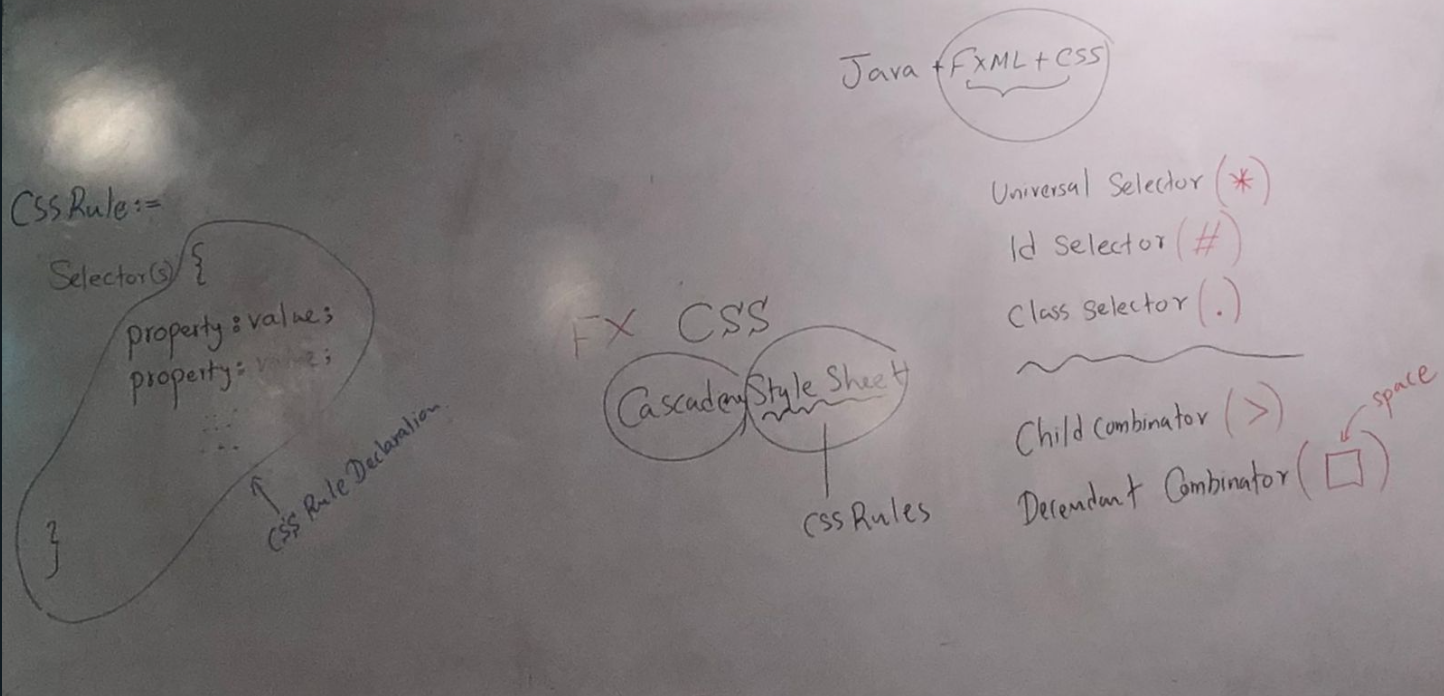 Java + FXML + CSS
CSS Rule :=
Selector(s) {
property : value ;
property : value ;
}
CSS Rule Declaration
FX CSS
Style Sheet
CSS Rules
Universal Selector (*)
Id Selector (#)
Class Selector (.)
Child Combinator (>)
space
Combinator ( )